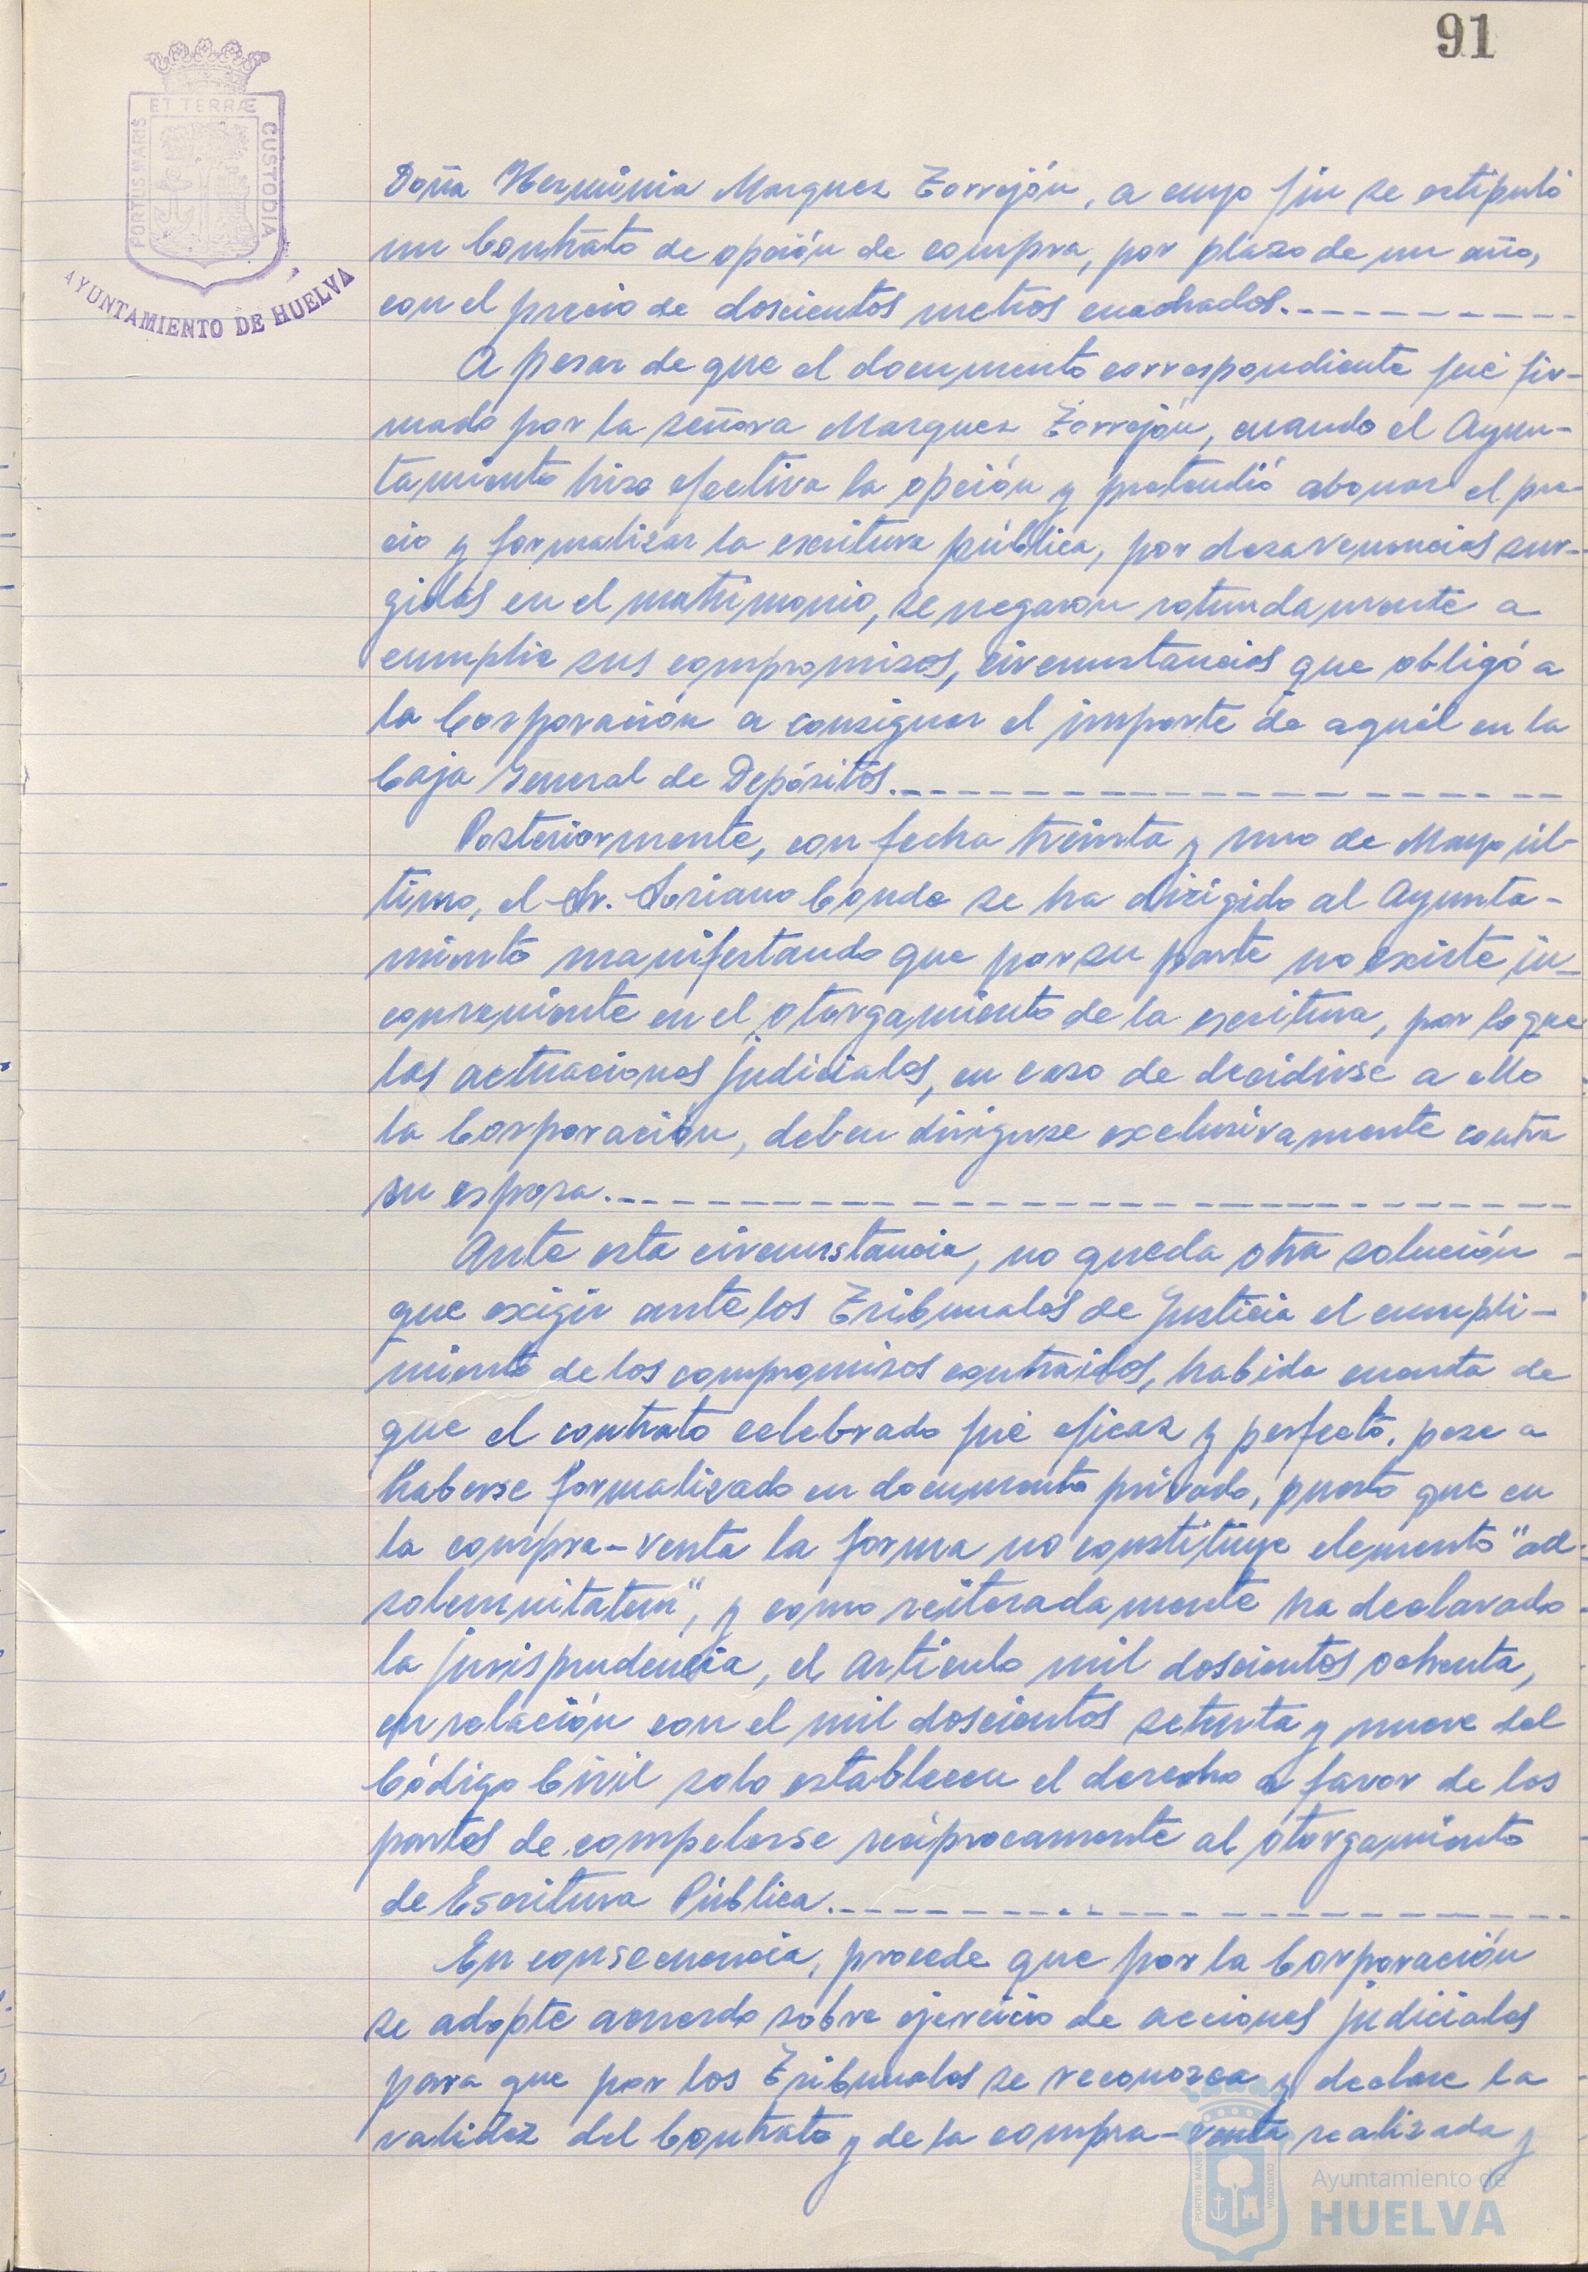 91
ET TERRÆ
PORTUS MARIS
CUSTODIA
AYUNTAMIENTO DE HUELVA
Doña Herminia Marquez Torrejón, a cuyo fin se estipuló
un Contrato de opción de compra, por plazo de un año,
con el precio de doscientos metros cuadrados.
A pesar de que el documento correspondiente fué fir-
mado por la señora Marquez Torrejón, cuando el Ayun-
tamiento hizo efectiva la opción y pretendió abonar el pre-
cio y formalizar la escritura pública, por desavenencias sur-
gidas en el matrimonio, se negaron rotundamente a
cumplir sus compromisos, circunstancias que obligó a
la Corporación a consignar el importe de aquél en la
Caja General de Depósitos.
Posteriormente, con fecha treinta y uno de Mayo úl-
timo, el Sr. Soriano Conde se ha dirigido al Ayunta-
miento manifestando que por su parte no existe in-
conveniente en el otorgamiento de la escritura, por lo que
las actuaciones judiciales, en caso de decidirse a ello
la Corporación, deben dirigirse exclusivamente contra
su esposa.
Ante esta circunstancia, no queda otra solución
que exigir ante los Tribunales de Justicia el cumpli-
miento de los compromisos contraidos, habida cuenta de
que el contrato celebrado fué eficaz y perfecto, pese a
haberse formalizado en documento privado, puesto que en
la compra-venta la forma no constituye elemento "ad
solemnitatem", y como reiteradamente ha declarado
la jurisprudencia, el artículo mil doscientos ochenta,
en relación con el mil doscientos setenta y nueve del
Código Civil solo establecen el derecho a favor de las
partes de compelerse recíprocamente al otorgamiento
de Escritura Pública.
En consecuencia, procede que por la Corporación
se adopte acuerdo sobre ejercicio de acciones judiciales
para que por los Tribunales se reconozca y declare la
validez del Contrato y de la compra-venta realizada y
PORTUS MARIS
CUSTODIA
Ayuntamiento de
HUELVA